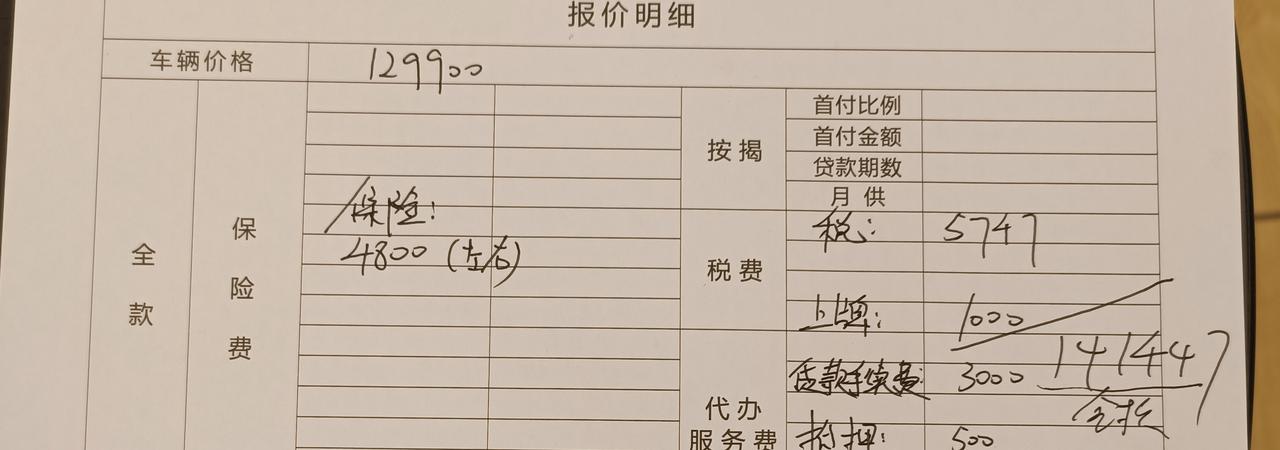 报价明细
车辆价格 129900
全款
保险费
保险:
4800 (左右)
按揭
首付比例
首付金额
贷款期数
月供
税费
税: 5747
上牌: 1000
141447
全款
代办
服务费
贷款手续费: 3000
抵押: 500